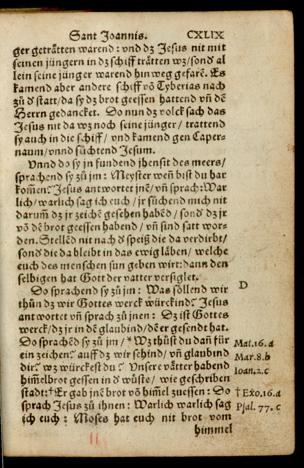 Sant Joannis. CXLIX
ger geträtten warend: vnd dz Jesus nit mit
seinen jüngern in dz schiff trätten wz/sond̓ al
lein seine jünger warend hinweg gefarē. Es
kamend aber andere schiff vō Tyberias nach
zů d̓ statt/da sy dz brot geessen hattend vn̄ dē
Herrn gedancket. Do nun dz volck sach das
Jesus nit da wz noch seine jünger/ trattend
sy auch in die schiff/ vnd kamend gen Caper-
naum/vnnd sůchtend Jesum.
Vnnd do sy jn fundend jhensit des meers/
sprachend sy zů jm: Meyster wen̄ bist du har
kom̄en? Jesus antwortet jnē/ vn̄ sprach: War
lich/warlich sag ich euch/ jr sůchend mich nit
darum̄ dz jr zeichē gesehen habēd/ sond̓ dz jr
vō dē brot geessen habend/ vn̄ sind satt wor-
den. Stellēd nit nach d̓ speiß die da verdirbt/
sond̓ die da bleibt in das ewig läben/ welche
euch des menschen sun geben wirt: dann den
selbigen hat Gott der vatter versiglet.
D
Do sprachend sy zů jm: Was söllend wir
thůn dz wir Gottes werck würckind? Jesus
antwortet vn̄ sprach zů jnen: Dz ist Gottes
werck/dz jr in dē glaubind/dē er gesendt hat.
Do sprachēd sy zů jm/ * Wz thůst du dan̄ für
ein zeichen? auff dz wir sehind/ vn̄ glaubind
dir? wz würckest du? Unsere vätter habend
him̄elbrot geessen in d̓ wůste/ wie geschriben
stadt: † Er gab jnē brot vō him̄el zuessen: Do
sprach Jesus zů ihnen: Warlich warlich sag
ich euch: Moses hat euch nit brot vom
himmel
Mat.16.a
Mar.8.b
Ioan.2.c
† Exo.16.a
Psal.77.c